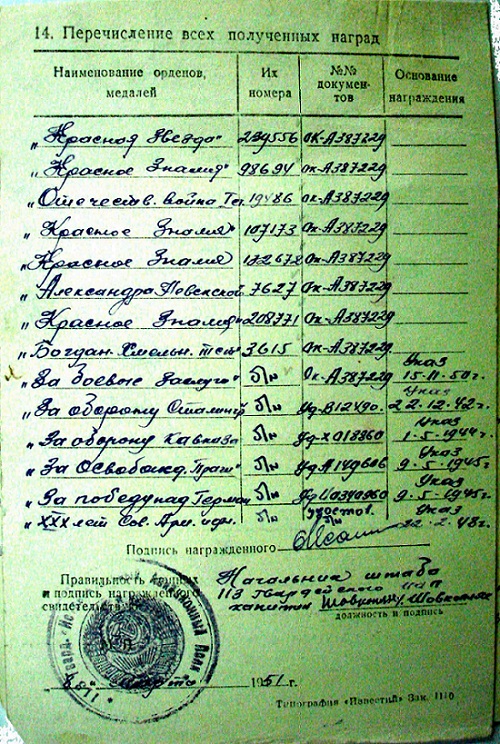 14. Перечисление всех полученных наград
Наименование орденов, медалей Их номера №№ документов Основание награждения
„Красная Звезда" 239556 ОК-А387229
„Красное Знамя" 98694 Ок-А387229
„Отечеств. война Iст. 19486 ок-А387229
„Красное Знамя" 107173 Ок-А387229
„Красное Знамя 172672 Ок-А387229
„Александра Невский 7627 Ок-А387229
„Красное Знамя" 208771 Ок-А387229
„Богдан. Хмельн. IIст" 3615 Ок-А387229
„За боевые заслуги" б/н Ок-А387229 Указ 15.11.50г.
„За оборону Сталингр б/н Уд-В12490. Указ 22.12.42г.
„За оборону Кавказа б/н Уд-Х018860 Указ 1.5.1944г.
„За Освобожд. Праги" б/н Уд А149606 Указ 9.5.1945г
„За победу над Герман б/н Уд Ц0340960 Указ 9.5.1945г
„XXX лет Сов. Арм. б/н удостов. б/н Указ 22.2.48г.
Подпись награжденного
Правильность данных
и подпись награжденного
свидетельствую
Начальник штаба
113 Гвардейского
капитан
должность и подпись
марта 1951 г.
Типография «Известий» Зак. 1110